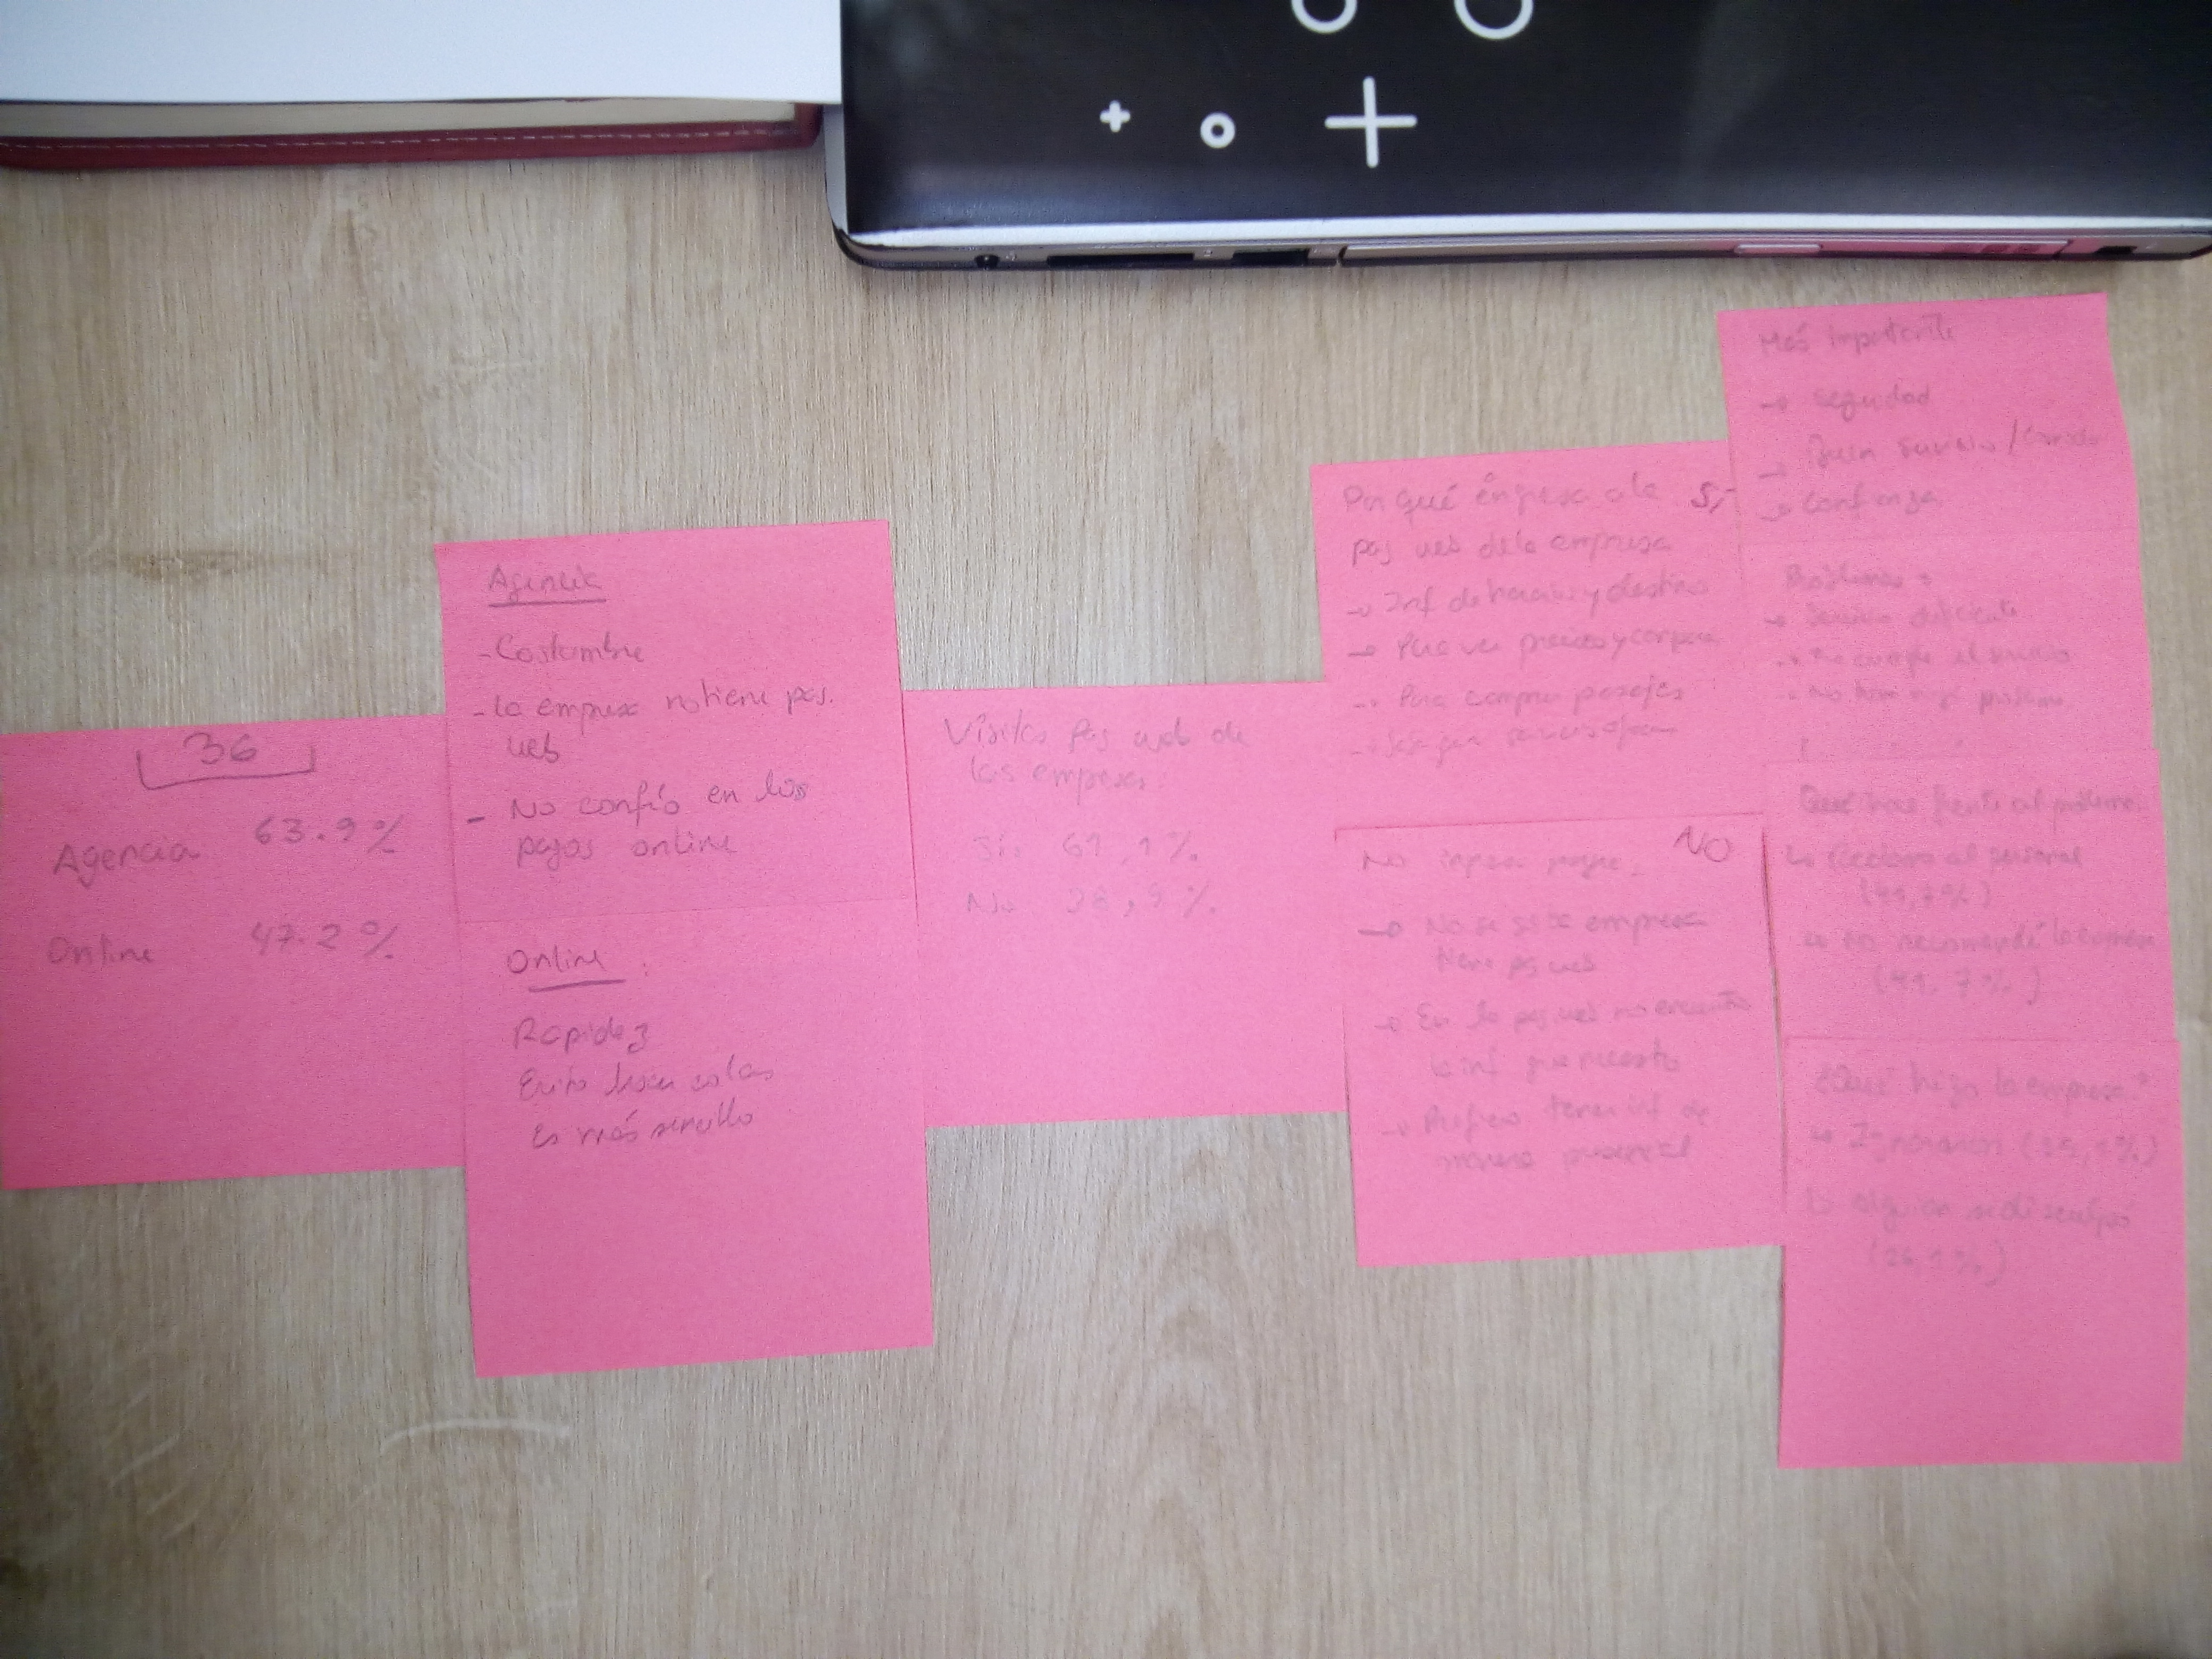 36
Agencia 63.9%
Online 47.2%
Agencia
- Costumbre
- La empresa no tiene pag.
web
- No confío en los
pagos online
Online :
Rapidez
Evito hacer colas
Es más sencillo
Visitas pag web de
las empresas:
Si. 61,1%
No 38,9%
Por qué ingresa a la Si
pag web de la empresa
→ Inf de horarios y destinos
→ Para ver precios y
→ Para comprar pasajes
No ingresa porque. NO
→ No se si la empresa
tiene pg web
→ En la pg web no encuentro
la inf que necesito
→ Prefiero tener inf de
manera presencial
Más importante
→ seguridad
→ Buen servicio /
→ Confianza
Problemas
→ Servicio deficiente
el servicio
Qué hice frente al problema
↳ Reclamo al personal
↳ no recomendé la empresa
(41.7%)
¿Qué hizo la empresa?
↳ Ignoraron
↳ alguien se disculpó